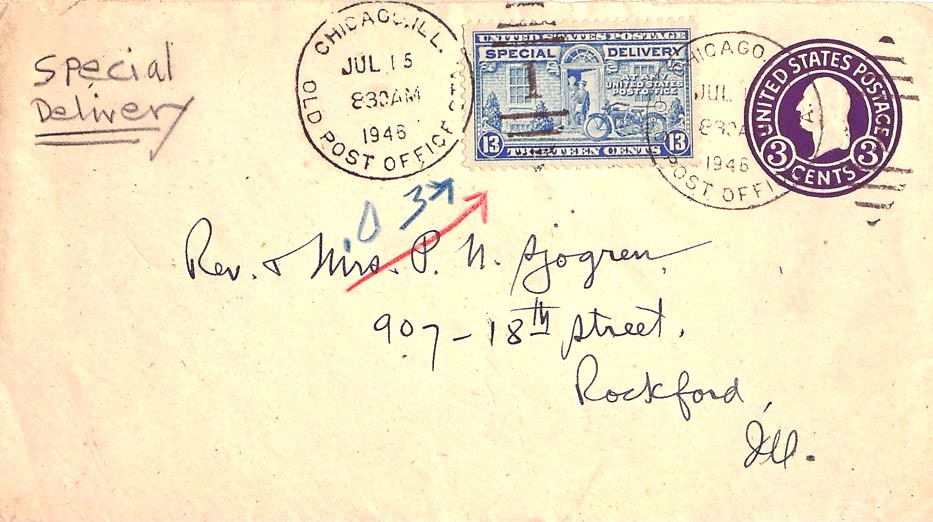 Special
Delivery
CHICAGO, ILL.
JUL 15
830AM
1946
OLD POST OFFICE
UNITED STATES POSTAGE
SPECIAL DELIVERY
AT ANY
UNITED STATES
POST OFFICE
13 THIRTEEN CENTS 13
1
CHICAGO,
JUL
830A
1946
POST OFFI
UNITED STATES POSTAGE
3 CENTS 3
D 3
Rev. & Mrs. P. N. Sjogren
907-18th Street.
Rockford,
Ill.